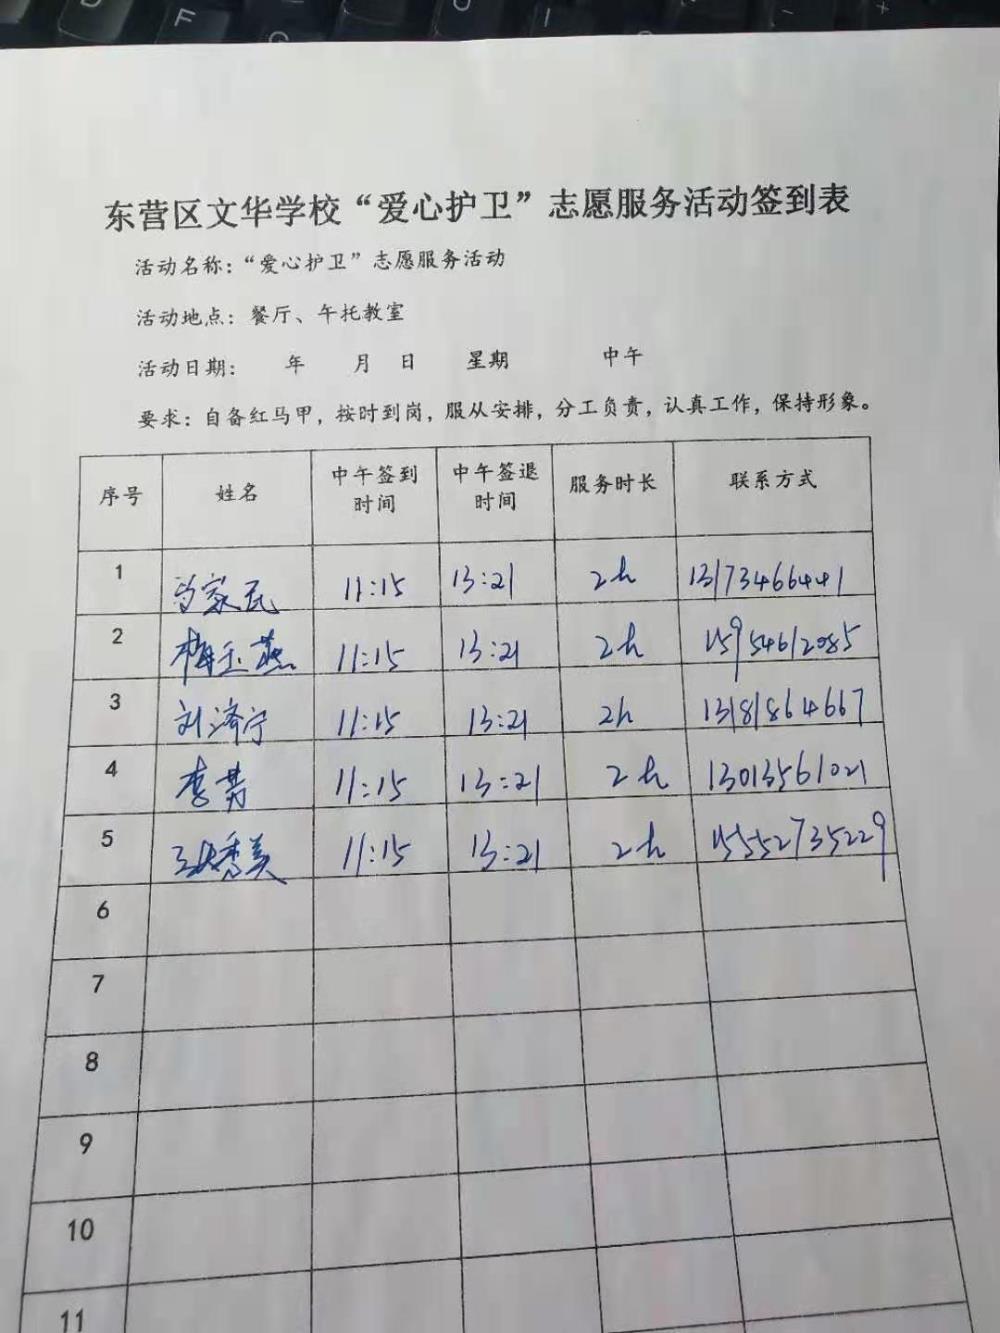 东营区文华学校“爱心护卫”志愿服务活动签到表
活动名称：“爱心护卫”志愿服务活动
活动地点：餐厅、午托教室
活动日期： 年 月 日 星期 中午
要求：自备红马甲，按时到岗，服从安排，分工负责，认真工作，保持形象。
序号 姓名 中午签到时间 中午签退时间 服务时长 联系方式
1 家民 11:15 13:21 2h 13173466441
2 梅玉燕 11:15 13:21 2h 15954612085
3 刘济宁 11:15 13:21 2h 13181864667
4 李菁 11:15 13:21 2h 13013561021
5 秀美 11:15 13:21 2h 15552735229
6
7
8
9
10
11